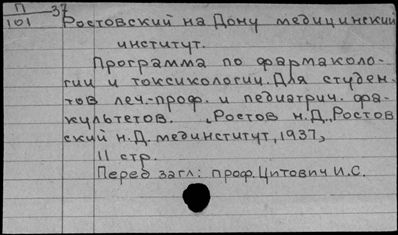 П 37
101
Ростовский на Дону медицинский
институт.
Программа по фармаколо-
гии и токсикологии. Для студен-
тов леч.-проф. и педиатрич. фа-
культетов. Ростов н.Д., Ростов
ский н.Д. мединститут, 1937,
11 стр.
Перед загл: проф. Цитович И.С.